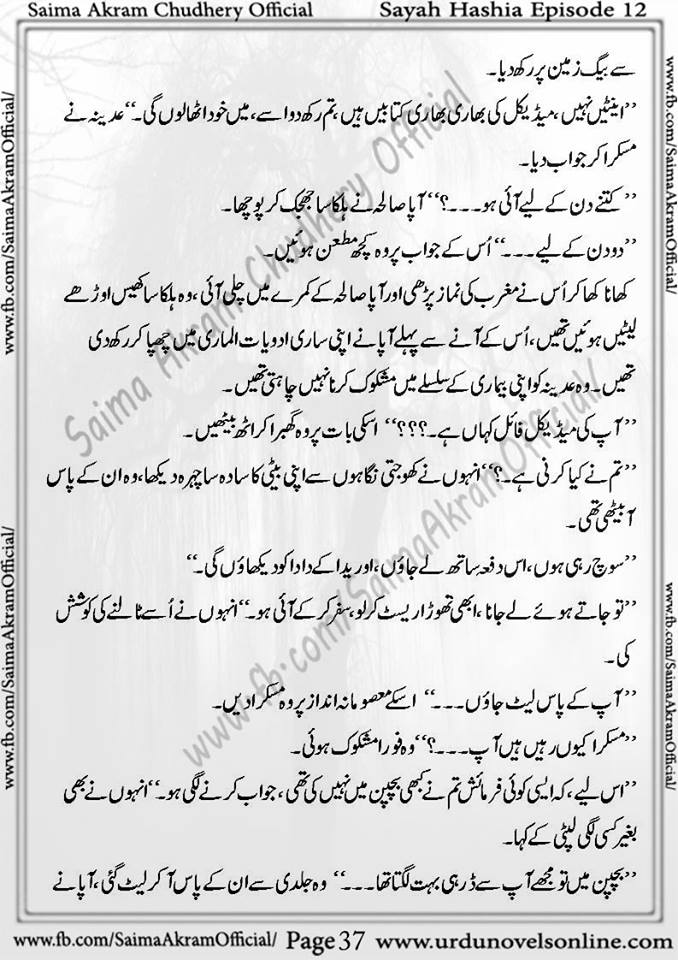 Saima Akram Chudhery Official Sayah Hashia Episode 12
سے بیگ زمین پر رکھ دیا۔
’’اینٹیں نہیں، میڈیکل کی بھاری بھاری کتابیں ہیں، تم رکھ دو اسے، میں خود اٹھا لوں گی۔‘‘ عدینہ نے
مسکرا کر جواب دیا۔
’’کتنے دن کے لیے آئی ہو۔۔۔؟‘‘ آپا صالحہ نے ہلکا سا جھجک کر پوچھا۔
’’دو دن کے لیے۔۔۔‘‘ اُس کے جواب پر وہ کچھ مطعن ہوئیں۔
کھانا کھا کر اُس نے مغرب کی نماز پڑھی اور آپا صالحہ کے کمرے میں چلی آئی، وہ ہلکا سا کھیس اوڑھے
لیٹیں ہوئیں تھیں، اُس کے آنے سے پہلے آپا نے اپنی ساری ادویات الماری میں چھپا کر رکھ دی
تھیں۔ وہ عدینہ کو اپنی بیماری کے سلسلے میں مشکوک کرنا نہیں چاہتی تھیں۔
’’آپ کی میڈیکل فائل کہاں ہے۔؟؟؟‘‘ اسکی بات پر وہ گھبرا کر اٹھ بیٹھیں۔
’’تم نے کیا کرنی ہے۔؟‘‘ انہوں نے کھوجتی نگاہوں سے اپنی بیٹی کا سادہ سا چہرہ دیکھا، وہ ان کے پاس
آ بیٹھی تھی۔
’’سوچ رہی ہوں، اس دفعہ ساتھ لے جاؤں، اوریدا کے دادا کو دیکھاؤں گی۔‘‘
’’تو جاتے ہوئے لے جانا، ابھی تھوڑا ریسٹ کر لو، سفر کر کے آئی ہو۔‘‘ انہوں نے اُسے ٹالنے کی کوشش
کی۔
’’آپ کے پاس لیٹ جاؤں۔۔۔‘‘ اسکے معصومانہ انداز پر وہ مسکرا دیں۔
’’مسکرا کیوں رہیں ہیں آپ۔۔۔؟‘‘ وہ فورا مشکوک ہوئی۔
’’اس لیے، کہ ایسی کوئی فرمائش تم نے کبھی بچپن میں نہیں کی تھی، جواب کرنے لگی ہو۔‘‘ انہوں نے بھی
بغیر کسی لگی لپٹی کے کہا۔
’’بچپن میں تو مجھے آپ سے ڈر ہی بہت لگتا تھا۔۔۔‘‘ وہ جلدی سے ان کے پاس آ کر لیٹ گئی، آپا نے
www.fb.com/SaimaAkramOfficial/ Page 37 www.urdunovelsonline.com
www.fb.com/SaimaAkramOfficial/
www.fb.com/SaimaAkramOfficial/
www.fb.com/SaimaAkramOfficial/
www.fb.com/SaimaAkramOfficial/
Saima Akram Chudhery Official
www.fb.com/SaimaAkramOfficial/